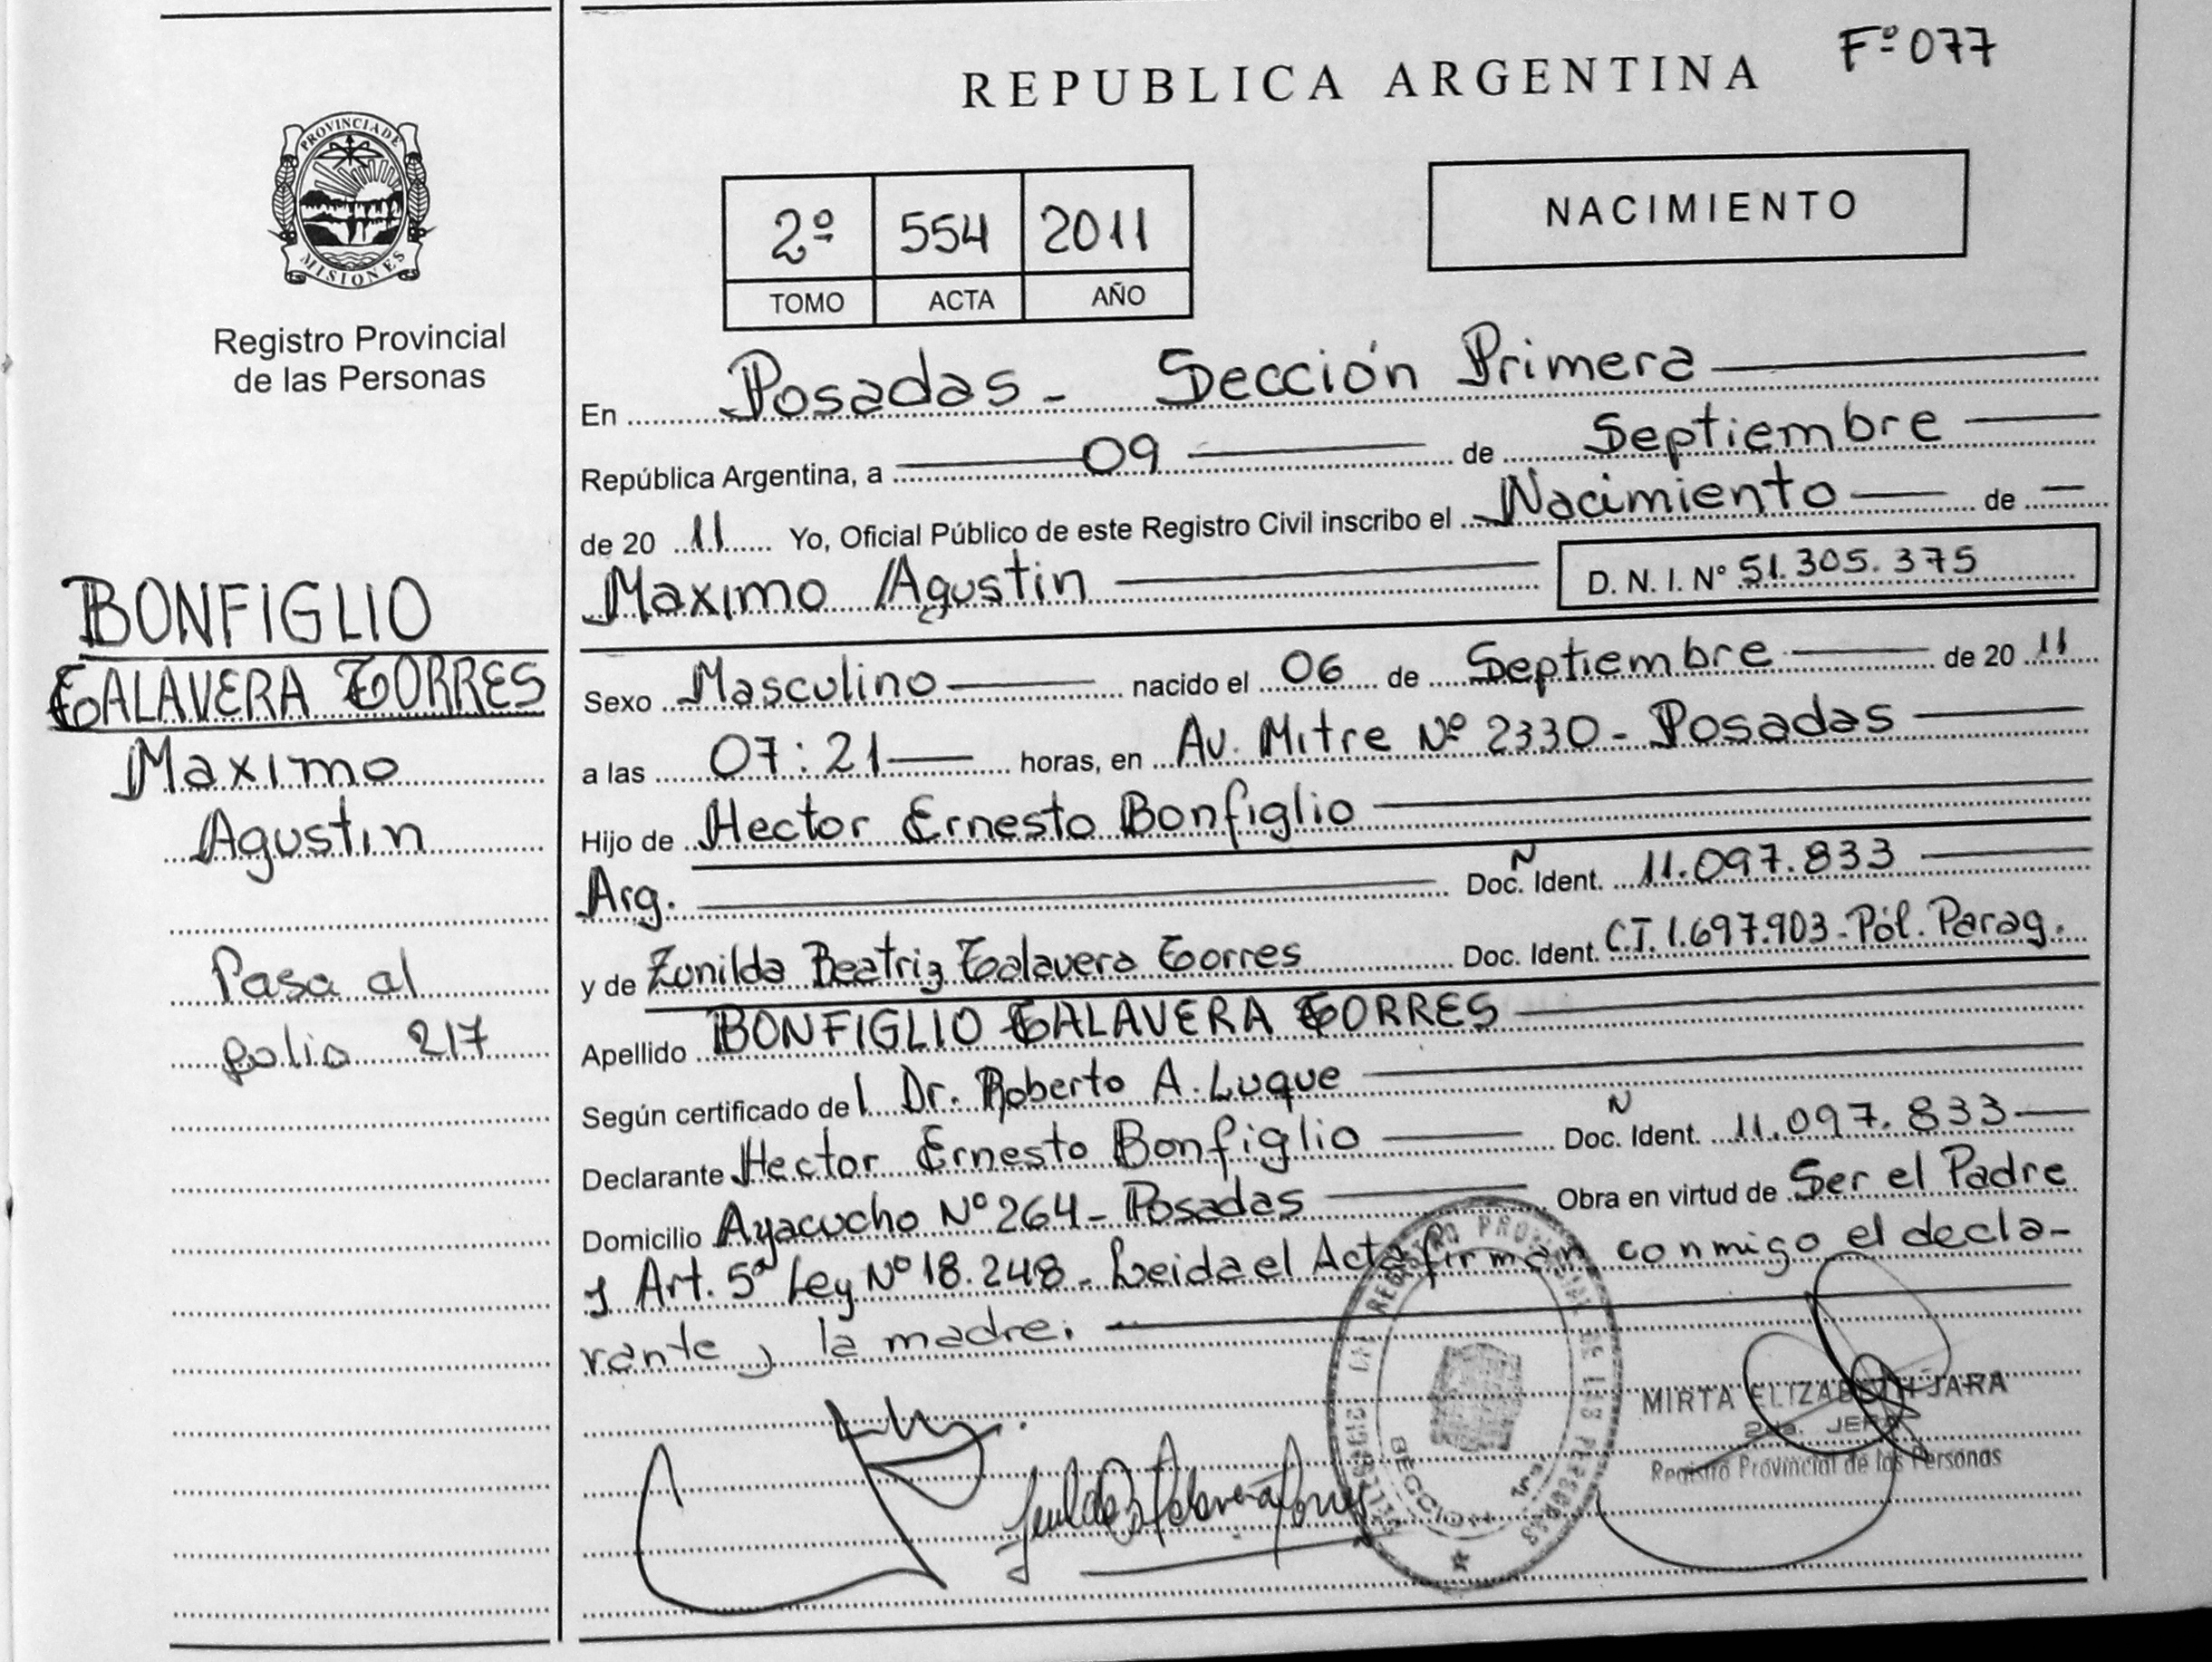 PROVINCIA DE
MISIONES
Registro Provincial
de las Personas
BONFIGLIO
TALAVERA TORRES
Maximo
Agustin
Pasa al
folio 217
REPUBLICA ARGENTINA Fº 077
2º 554 2011
TOMO ACTA AÑO
NACIMIENTO
En Posadas - Sección Primera
República Argentina, a 09 de Septiembre
de 20 11 Yo, Oficial Público de este Registro Civil inscribo el Nacimiento de
Maximo Agustin D. N. I. Nº 51.305.375
Sexo Masculino nacido el 06 de Septiembre de 20 11
a las 07:21 horas, en Av. Mitre Nº 2330 - Posadas
Hijo de Hector Ernesto Bonfiglio
Arg. Doc. N. Ident. 11.097.833
y de Zunilda Beatriz Talavera Torres Doc. Ident. C.I. 1.697.903 - Pól. Parag.
Apellido BONFIGLIO TALAVERA TORRES
Según certificado del Dr. Roberto A. Luque
Declarante Hector Ernesto Bonfiglio Doc. N Ident. 11.097.833
Domicilio Ayacucho Nº 264 - Posadas Obra en virtud de Ser el Padre
y Art. 5ª Ley Nº 18.248 - Leida el Acta firman conmigo el decla-
rante y la madre.
MIRTA ELIZABETH JARA
2da. JEFA
Registro Provincial de las Personas
REGISTRO PROVINCIAL DE LAS PERSONAS
SECCION 1ra